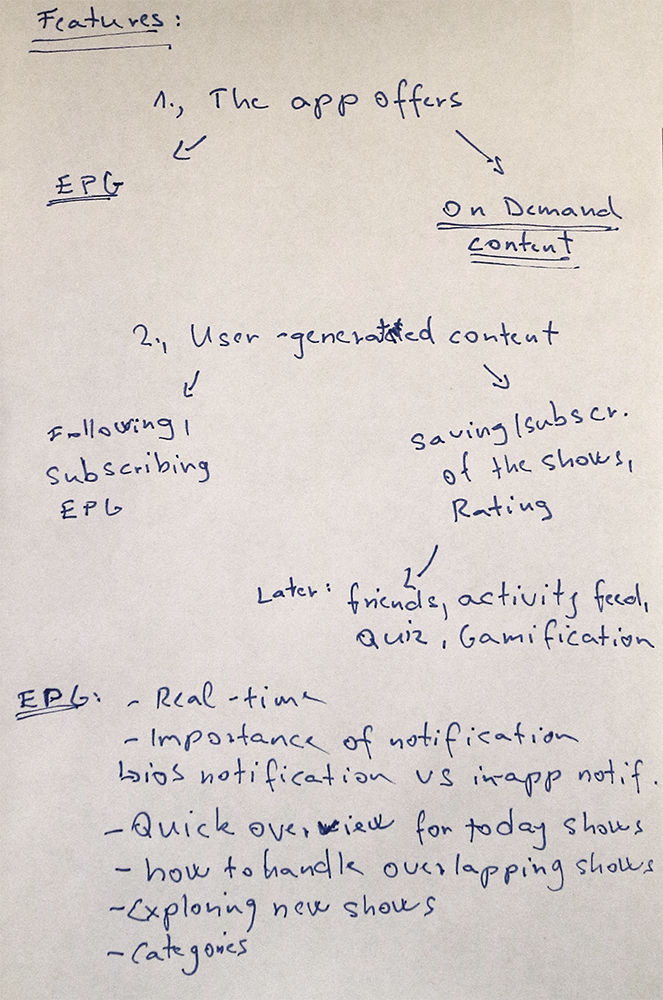 Features:
1., The app offers
EPG
On Demand
content
2., User-generated content
Following /
Subscribing
EPG
Saving/subscr.
of the shows,
Rating
Later: friends, activity feed,
Quiz, Gamification
EPG: - Real-time
- Importance of notification
ios notification vs in-app notif.
- Quick overview for today shows
- how to handle overlapping shows
- Exploring new shows
- Categories